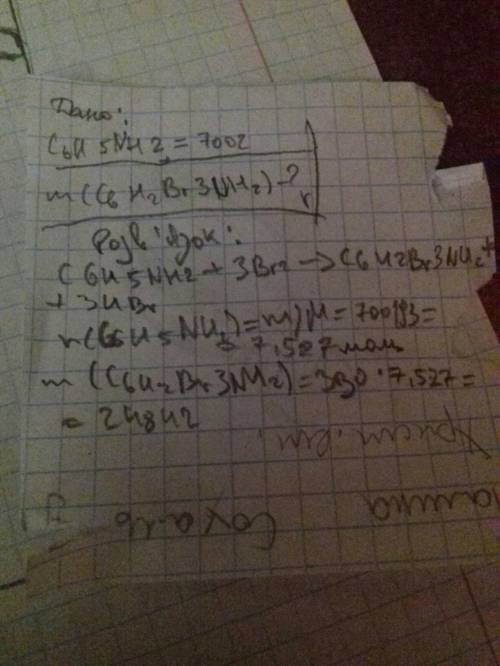 Дано:
C6H5NH2 = 700г
m(C6H2Br3NH2)-?
Розв'язок:
C6H5NH2 + 3Br2 → C6H2Br3NH2 +
+ 3HBr
n(C6H5NH2) = m/M = 700/93 =
= 7,527 моль
m (C6H2Br3NH2) = 330 · 7,527 =
= 2484г